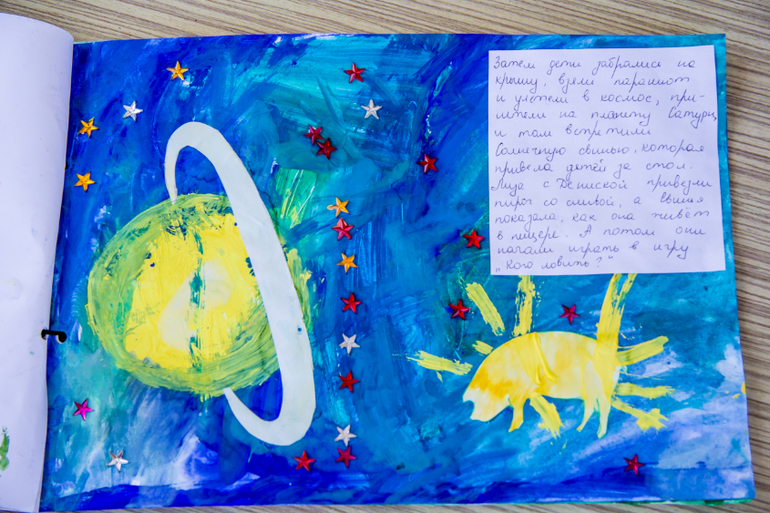 Затем дети забрались на
крышу, взяли парашют
и улетели в космос, при-
летели на планету Сатурн
и там встретили
Солнечную свинью, которая
привела детей за стол.
Лиза с Дениской привезли
пирог со сливой, а свинья
показала, как она живёт
в пещере. А потом они
начали играть в игру
„Кого ловить?"